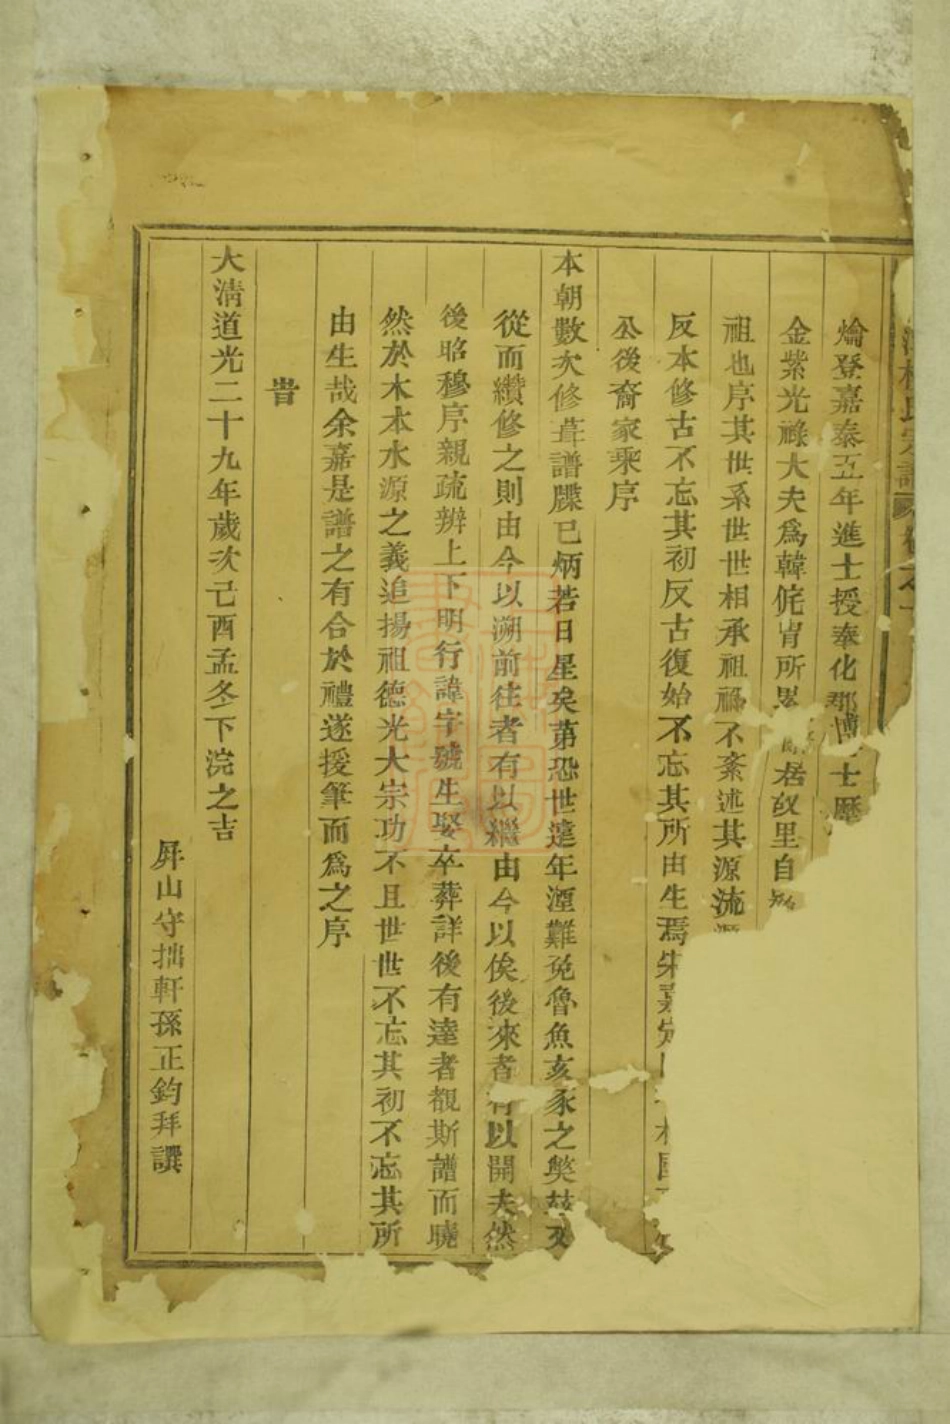 氏宗譜 卷之
爚登嘉泰五年進士授奉化郡博士歷
金紫光祿大夫爲韓侂冑所 居故里自
祖也序其世系世世相承祖禰不紊述其源流
反本修古不忘其初反古復始不忘其所由生焉宋嘉定
公後裔家乘序
本朝數次修葺譜牒已炳若日星矣第恐世遠年湮難免魯魚亥豕之獘茲又
從而纘修之則由今以溯前往者有以繼由今以俟後來者有以開夫然
後昭穆序親疏辨上下明行諱字號生娶卒葬詳後有達者覩斯譜而曉
然於木本水源之義追揚祖德光大宗功不且世世不忘其初不忘其所
由生哉余嘉是譜之有合於禮遂援筆而爲之序
旹
大清道光二十九年歲次己酉孟冬下浣之吉
屛山守拙軒孫正鈞拜譔